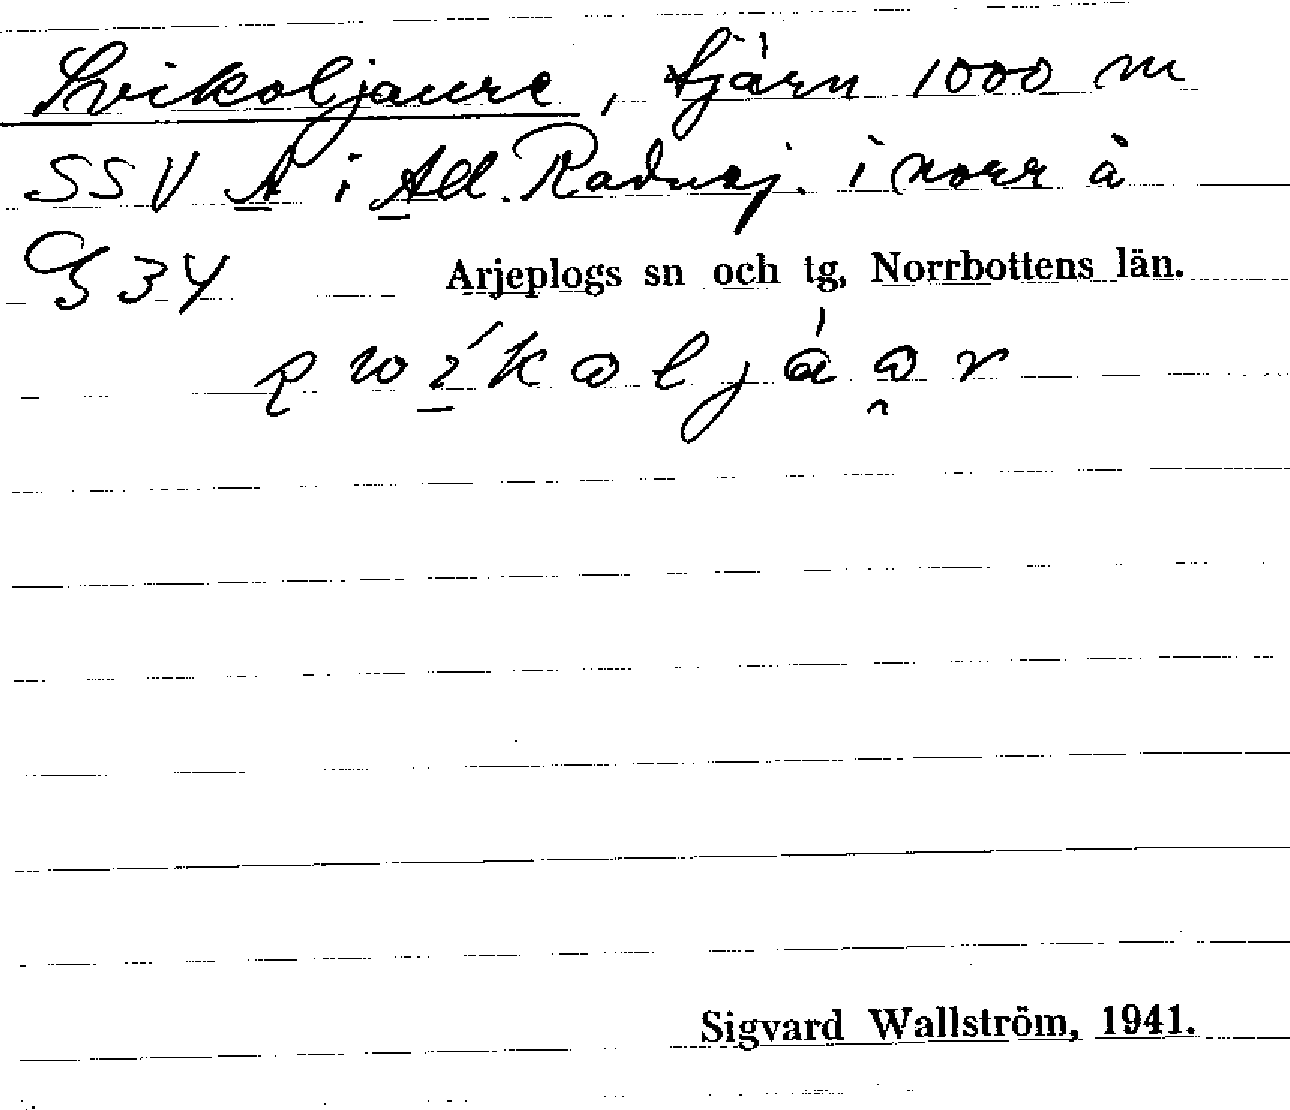 Svikoljaure, tjärn 1000 m
SSV A i Adl. Radnej. i norr å
G 34
Arjeplogs sn och tg, Norrbottens län.
Sigvard Wallström, 1941.